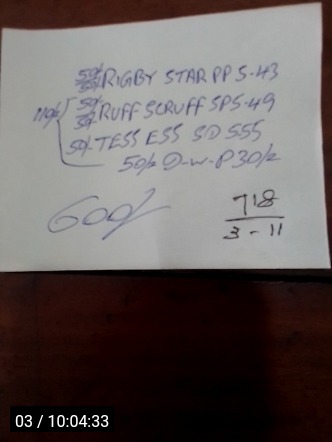 50/- 50/- RIGBY STAR PP 5-43
110/- 50/- 50/- RUFF SCRUFF SP5-49
50/- TESS ESS SD 555
50/2 D-W-P 30/2
600/-
718
3-11
03 / 10:04:33